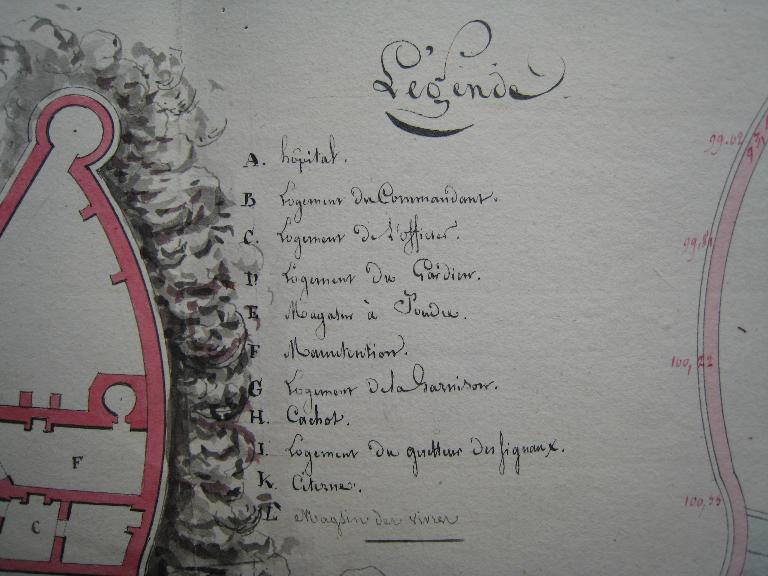 Légende
A. hôpital.
B Logement du Commandant.
C. Logement de l'officier.
D Logement du Gardien.
E Magasin à Poudre.
F Manutention.
G Logement de la Garnison.
H. Cachot.
I. Logement du guetteur des signaux.
K. Citerne.
L Magsin des vivres
F
C
99.02
99,81
100,22
100,55